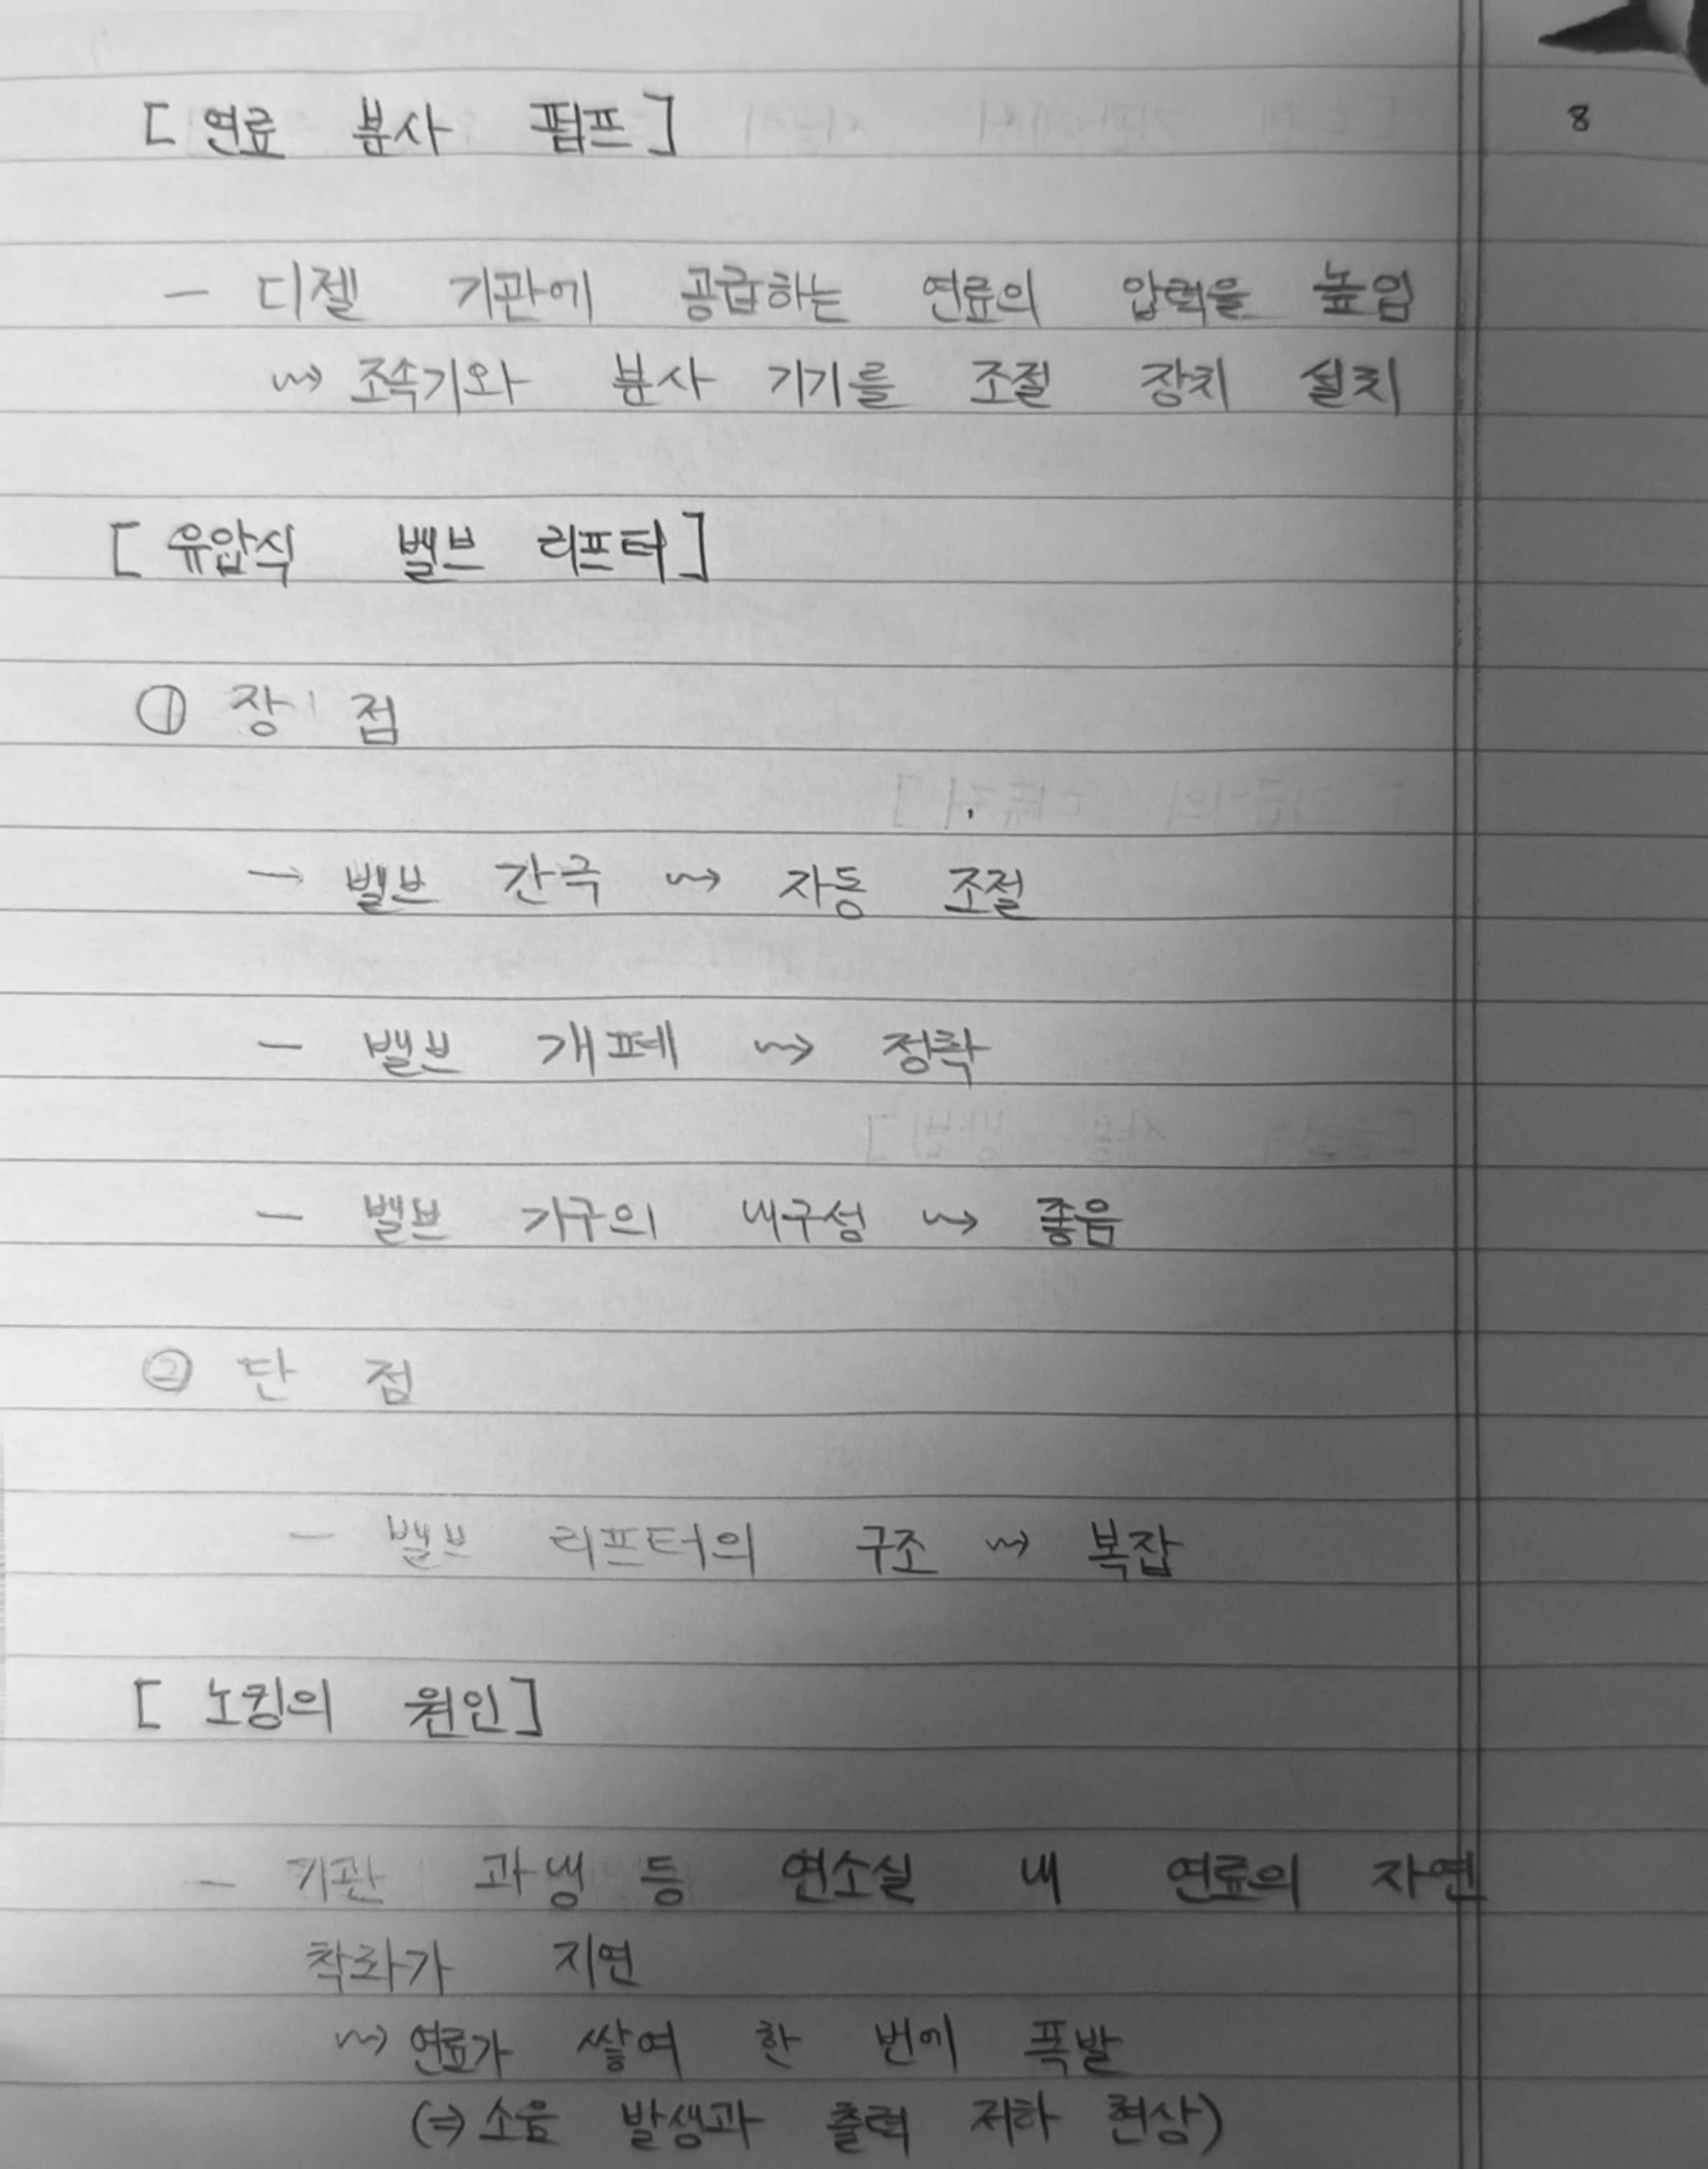 [연료 분사 펌프]
8
- 디젤 기관에 공급하는 연료의 압력을 높임
↝ 조속기와 분사 기기를 조절 장치 설치
[유압식 밸브 리프터]
① 장 점
- 밸브 간극 ↝ 자동 조절
- 밸브 개폐 ↝ 정확
- 밸브 기구의 내구성 ↝ 좋음
② 단 점
- 밸브 리프터의 구조 ↝ 복잡
[노킹의 원인]
- 기관 과냉 등 연소실 내 연료의 자연
착화가 지연
↝ 연료가 쌓여 한 번에 폭발
(⇒ 소음 발생과 출력 저하 현상)